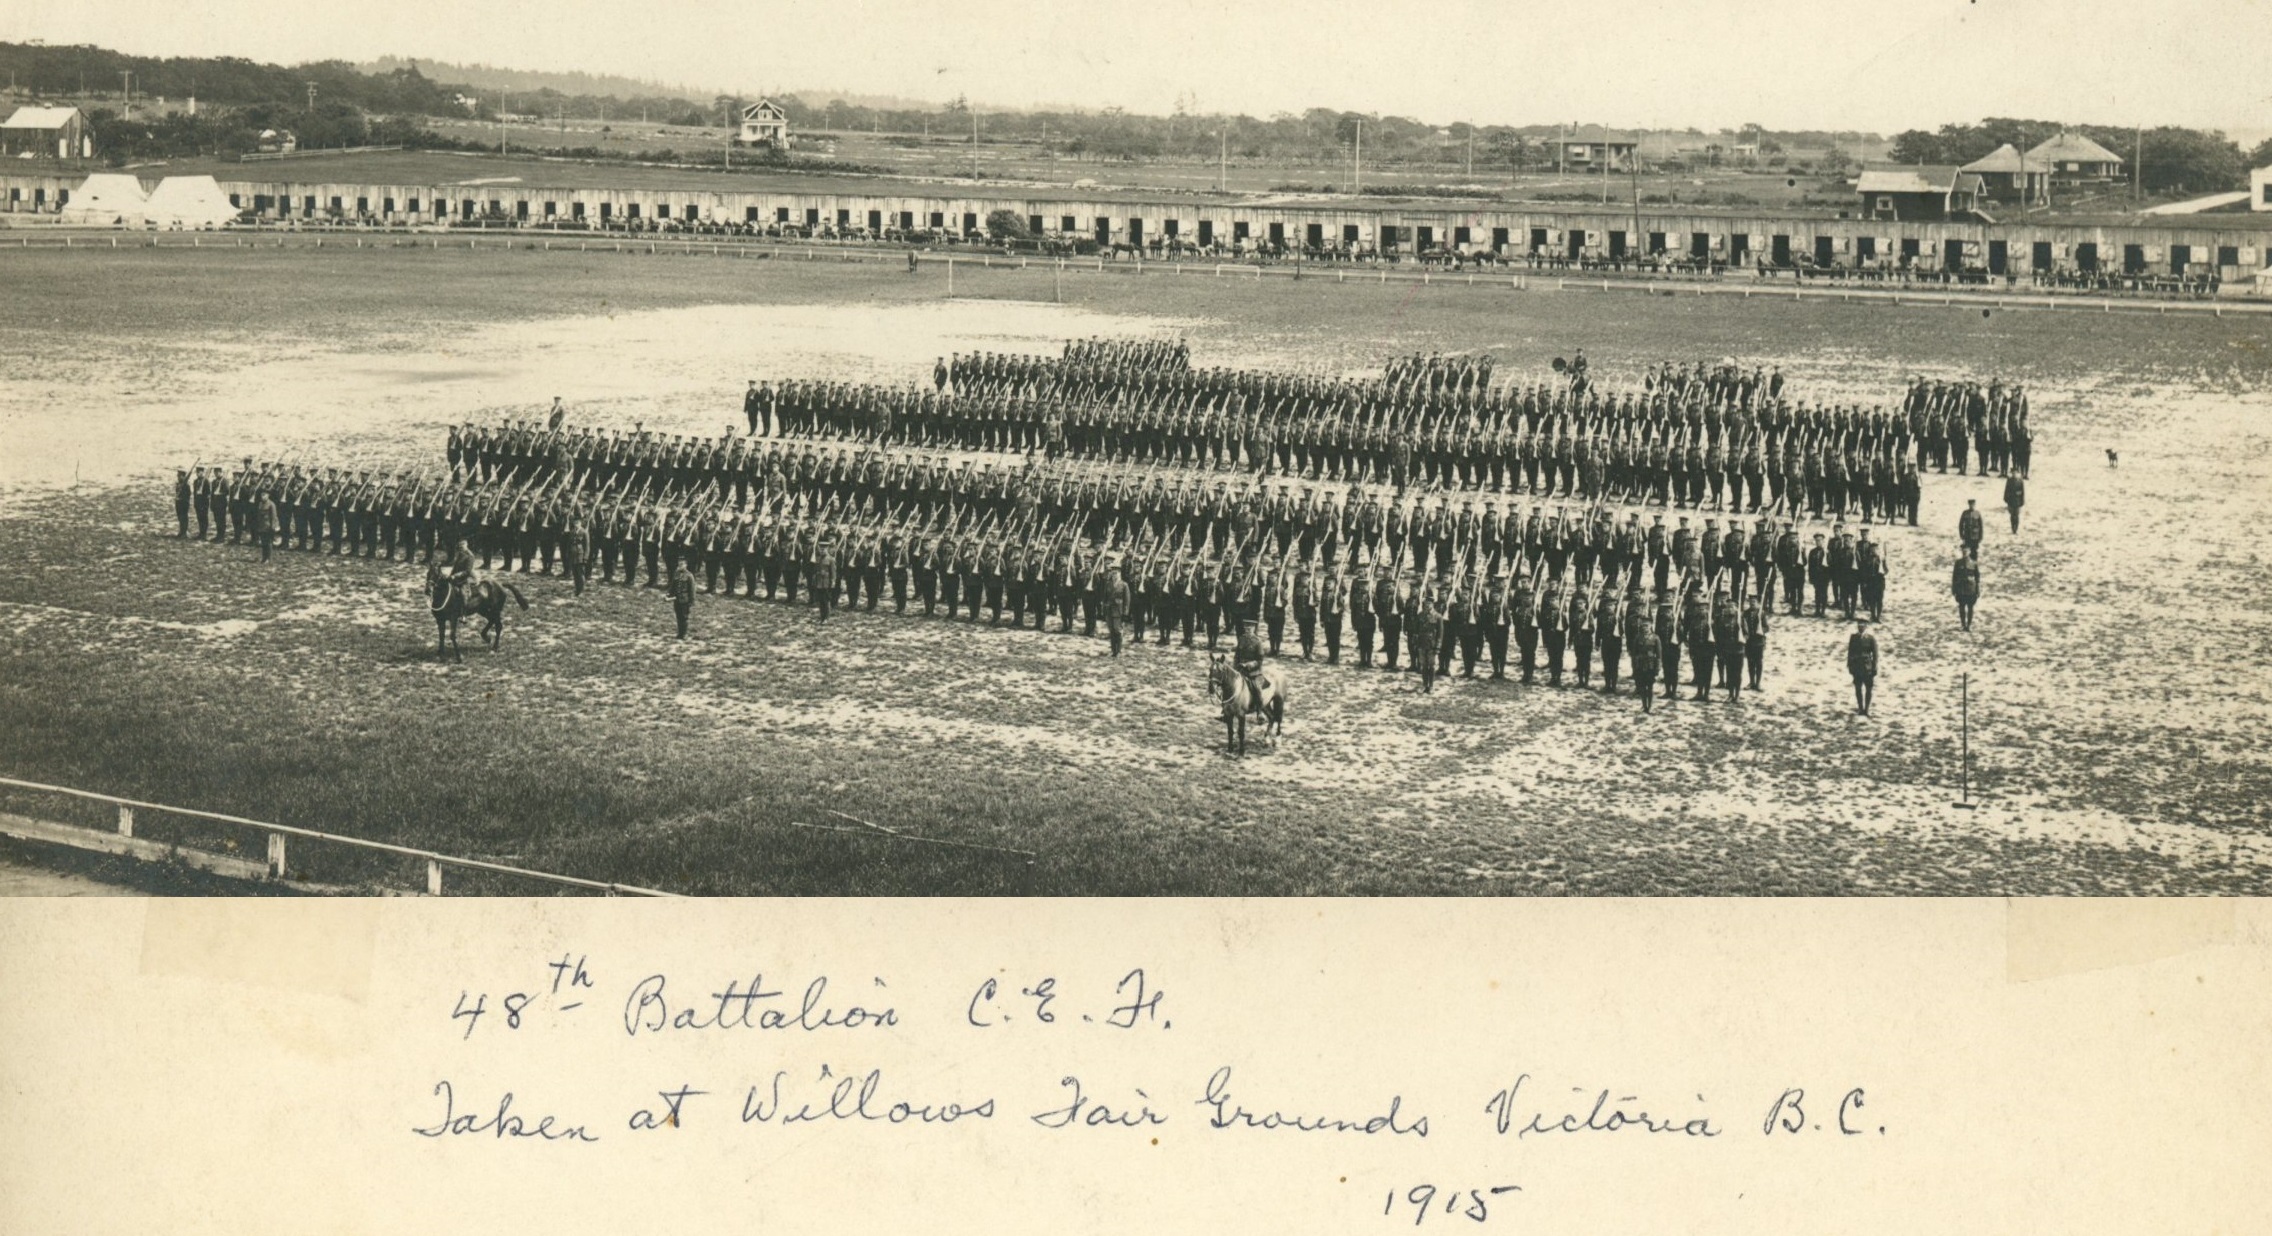 48th Battalion C.E.F.
Taken at Willows Fair Grounds Victoria B.C.
1915